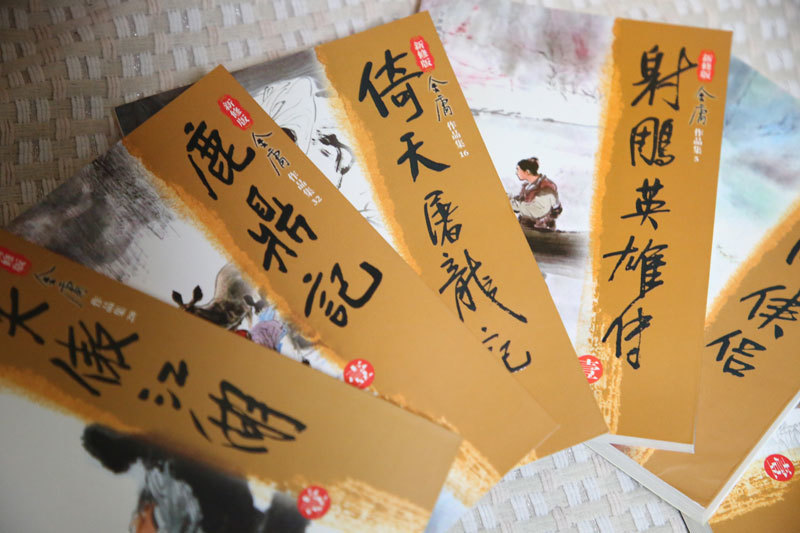 新修版
金庸 作品集28
笑傲江湖
壹
新修版
金庸 作品集32
鹿鼎記
壹
新修版
金庸 作品集16
倚天屠龍記
新修版
金庸 作品集5
射鵰英雄傳
壹
俠侶
壹